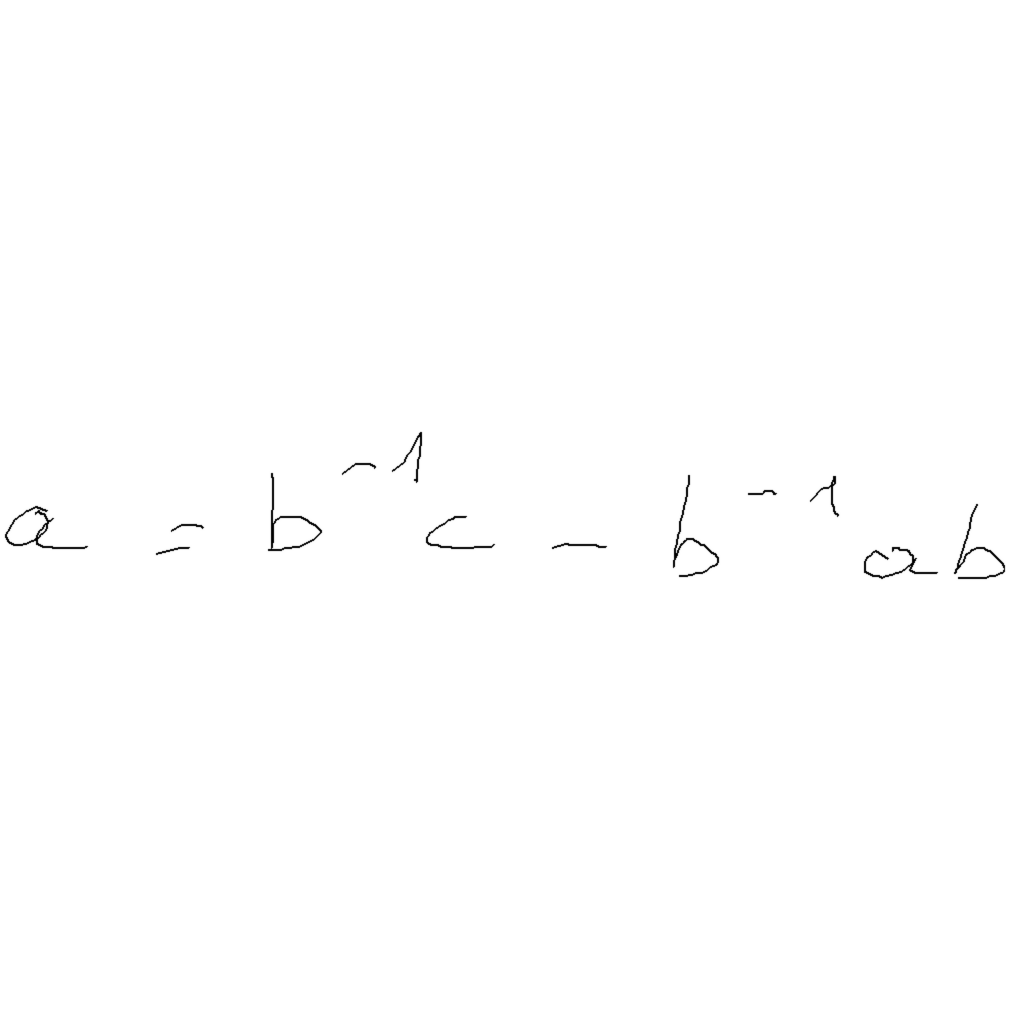 a = b⁻¹c - b⁻¹ab